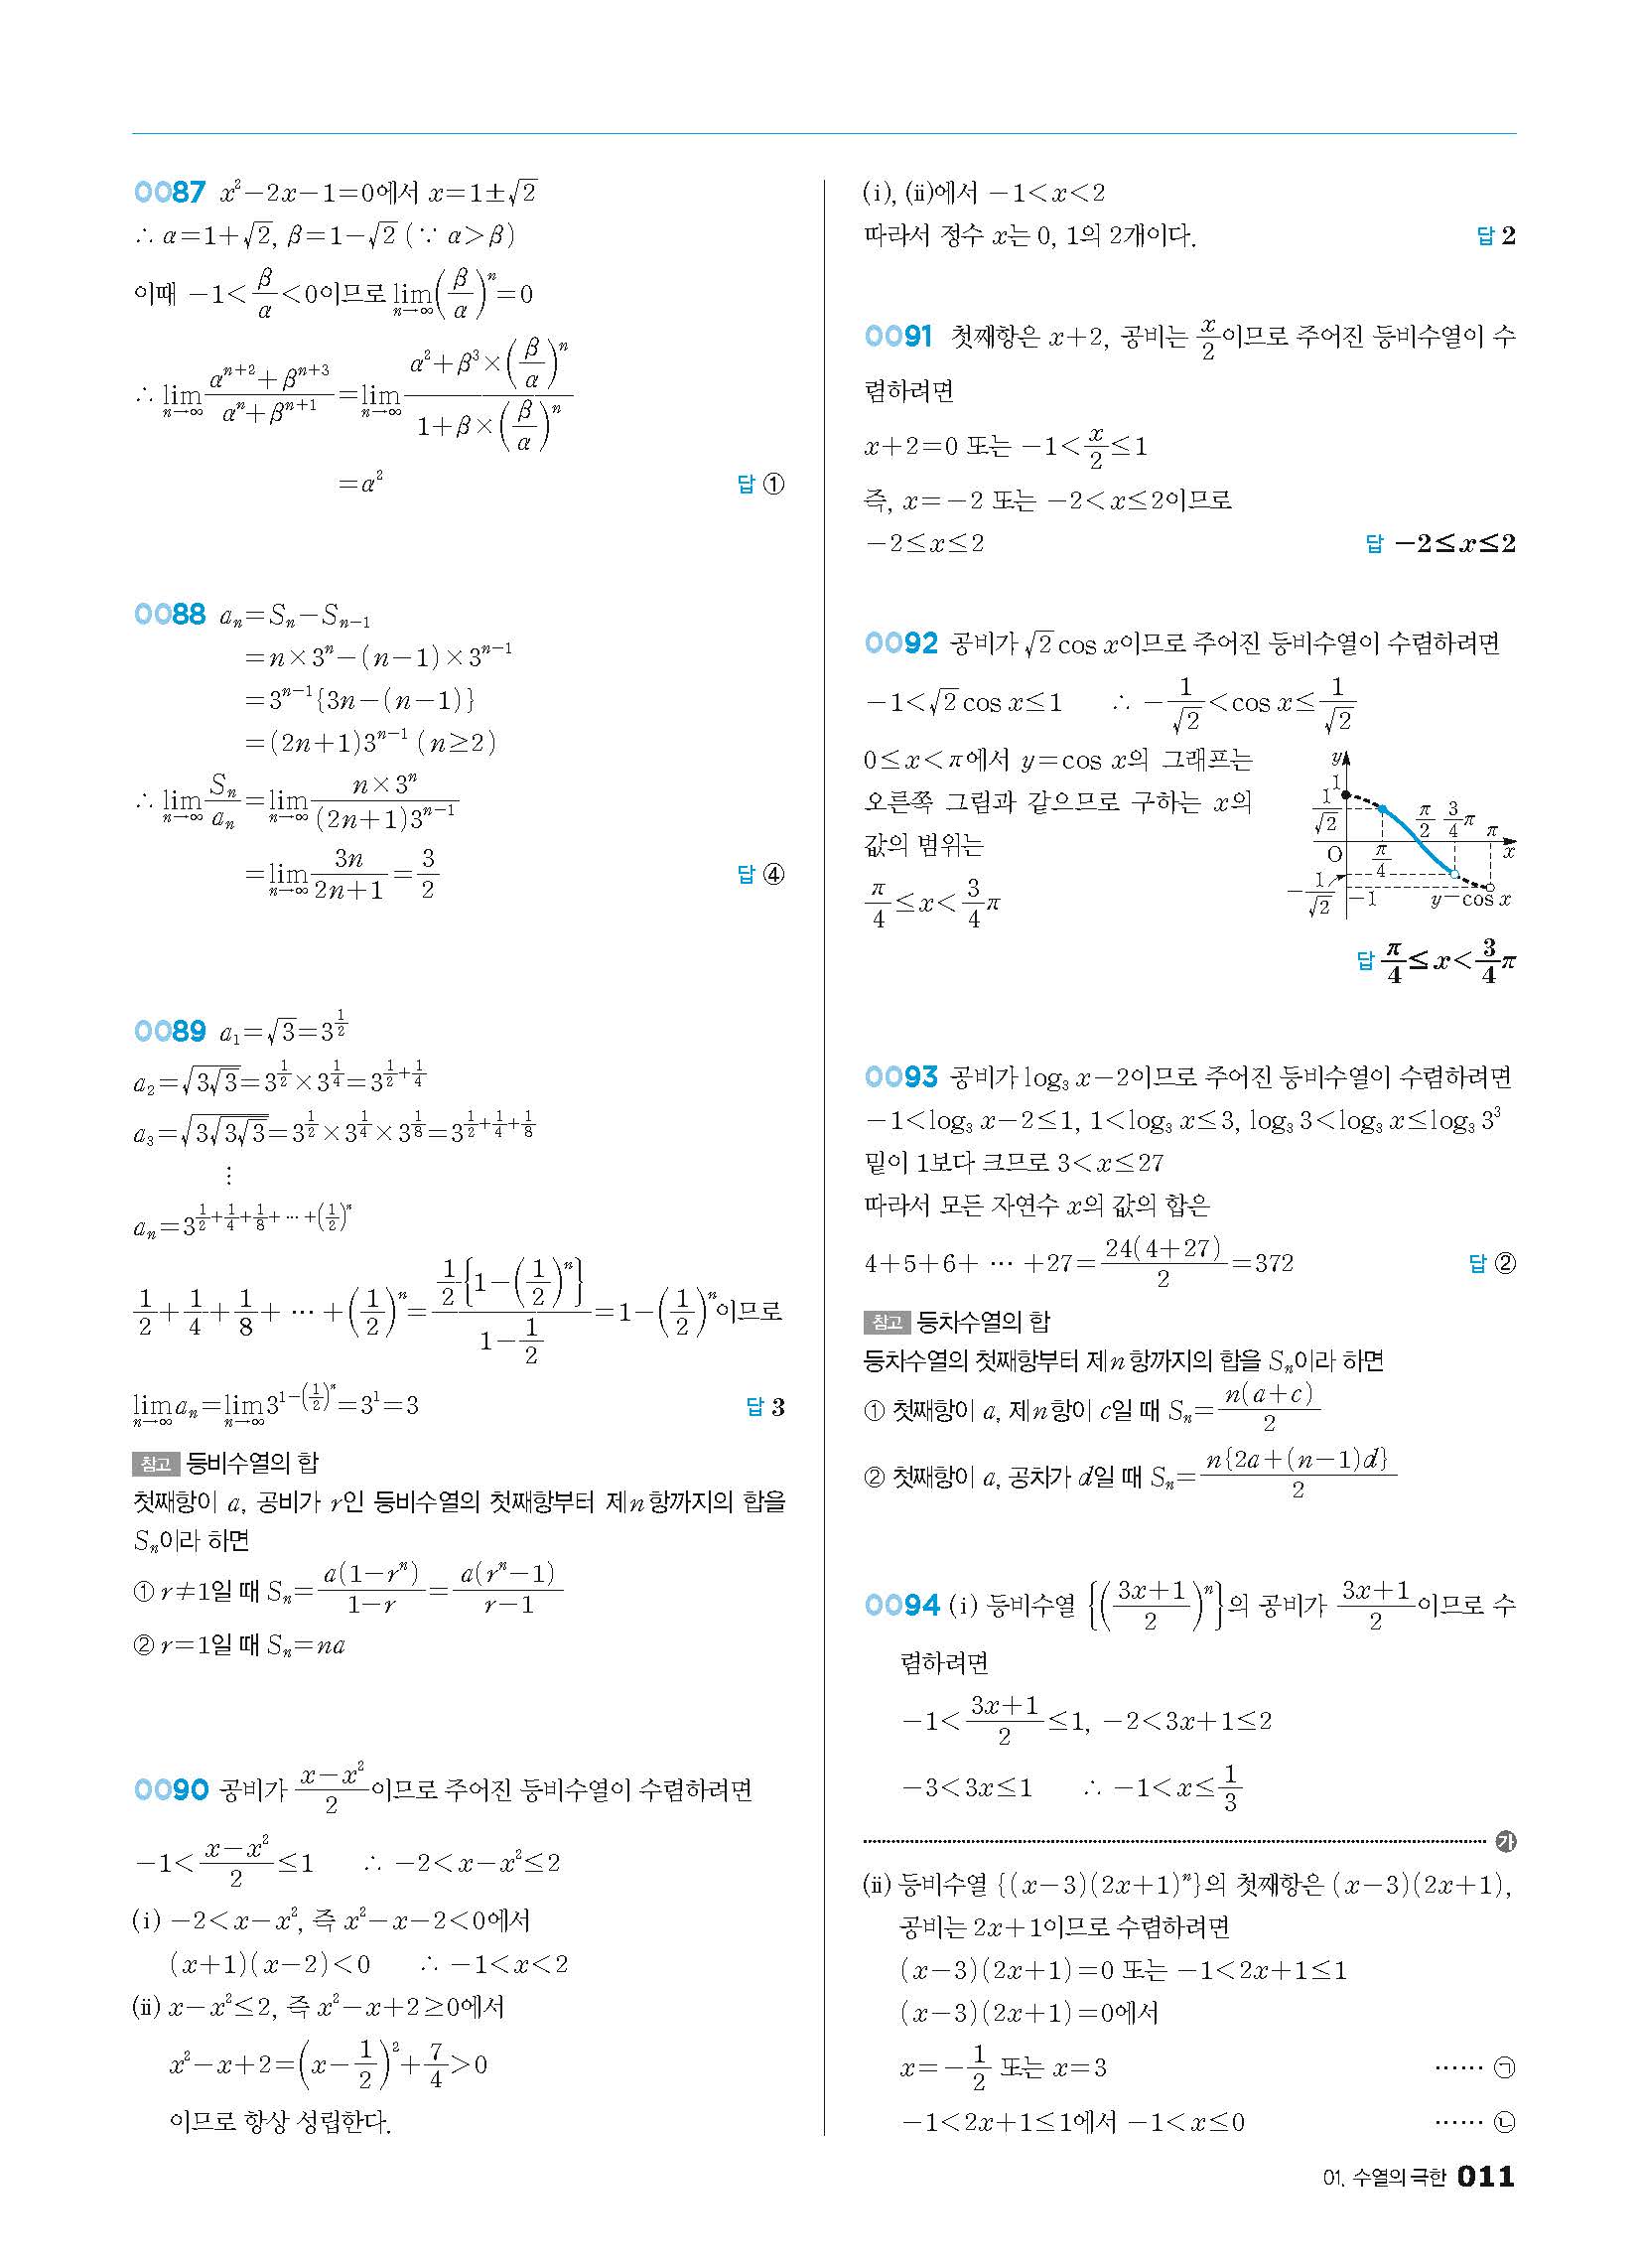 0087 x²-2x-1=0에서 x=1±√2
∴ α=1+√2, β=1-√2 (∵ α>β)
이때 -1<β/α<0이므로 lim_{n→∞}(β/α)ⁿ=0
∴ lim_{n→∞} (α^{n+2}+β^{n+3})/(αⁿ+β^{n+1})=lim_{n→∞} (α²+β³×(β/α)ⁿ)/(1+β×(β/α)ⁿ)
=α² 답 ①
0088 a_n=S_n-S_{n-1}
=n×3ⁿ-(n-1)×3^{n-1}
=3^{n-1}{3n-(n-1)}
=(2n+1)3^{n-1} (n≥2)
∴ lim_{n→∞} S_n/a_n=lim_{n→∞} (n×3ⁿ)/((2n+1)3^{n-1})
=lim_{n→∞} 3n/(2n+1)=3/2 답 ④
0089 a₁=√3=3^{1/2}
a₂=√(3√3)=3^{1/2}×3^{1/4}=3^{1/2+1/4}
a₃=√(3√(3√3))=3^{1/2}×3^{1/4}×3^{1/8}=3^{1/2+1/4+1/8}
⋮
a_n=3^{1/2+1/4+1/8+ ⋯ +(1/2)ⁿ}
1/2+1/4+1/8+ ⋯ +(1/2)ⁿ=(1/2{1-(1/2)ⁿ})/(1-1/2)=1-(1/2)ⁿ이므로
lim_{n→∞} a_n=lim_{n→∞} 3^{1-(1/2)ⁿ}=3¹=3 답 3
참고 등비수열의 합
첫째항이 a, 공비가 r인 등비수열의 첫째항부터 제n항까지의 합을
S_n이라 하면
① r≠1일 때 S_n=a(1-rⁿ)/(1-r)=a(rⁿ-1)/(r-1)
② r=1일 때 S_n=na
0090 공비가 (x-x²)/2이므로 주어진 등비수열이 수렴하려면
-1<(x-x²)/2≤1 ∴ -2<x-x²≤2
(ⅰ) -2<x-x², 즉 x²-x-2<0에서
(x+1)(x-2)<0 ∴ -1<x<2
(ⅱ) x-x²≤2, 즉 x²-x+2≥0에서
x²-x+2=(x-1/2)²+7/4>0
이므로 항상 성립한다.
(ⅰ), (ⅱ)에서 -1<x<2
따라서 정수 x는 0, 1의 2개이다. 답 2
0091 첫째항은 x+2, 공비는 x/2이므로 주어진 등비수열이 수
렴하려면
x+2=0 또는 -1<x/2≤1
즉, x=-2 또는 -2<x≤2이므로
-2≤x≤2 답 -2≤x≤2
0092 공비가 √2 cos x이므로 주어진 등비수열이 수렴하려면
-1<√2 cos x≤1 ∴ -1/√2<cos x≤1/√2
0≤x<π에서 y=cos x의 그래프는
오른쪽 그림과 같으므로 구하는 x의
값의 범위는
π/4≤x<3/4π
y
1
1/√2
π/2 3/4π π
O π/4 x
-1/√2 -1 y=cos x
답 π/4≤x<3/4π
0093 공비가 log₃ x-2이므로 주어진 등비수열이 수렴하려면
-1<log₃ x-2≤1, 1<log₃ x≤3, log₃ 3<log₃ x≤log₃ 3³
밑이 1보다 크므로 3<x≤27
따라서 모든 자연수 x의 값의 합은
4+5+6+ ⋯ +27=24(4+27)/2=372 답 ②
참고 등차수열의 합
등차수열의 첫째항부터 제n항까지의 합을 S_n이라 하면
① 첫째항이 a, 제n항이 c일 때 S_n=n(a+c)/2
② 첫째항이 a, 공차가 d일 때 S_n=n{2a+(n-1)d}/2
0094 (ⅰ) 등비수열 {((3x+1)/2)ⁿ}의 공비가 (3x+1)/2이므로 수
렴하려면
-1<(3x+1)/2≤1, -2<3x+1≤2
-3<3x≤1 ∴ -1<x≤1/3
㉮
(ⅱ) 등비수열 {(x-3)(2x+1)ⁿ}의 첫째항은 (x-3)(2x+1),
공비는 2x+1이므로 수렴하려면
(x-3)(2x+1)=0 또는 -1<2x+1≤1
(x-3)(2x+1)=0에서
x=-1/2 또는 x=3 ⋯⋯ ㉠
-1<2x+1≤1에서 -1<x≤0 ⋯⋯ ㉡
01. 수열의 극한 011